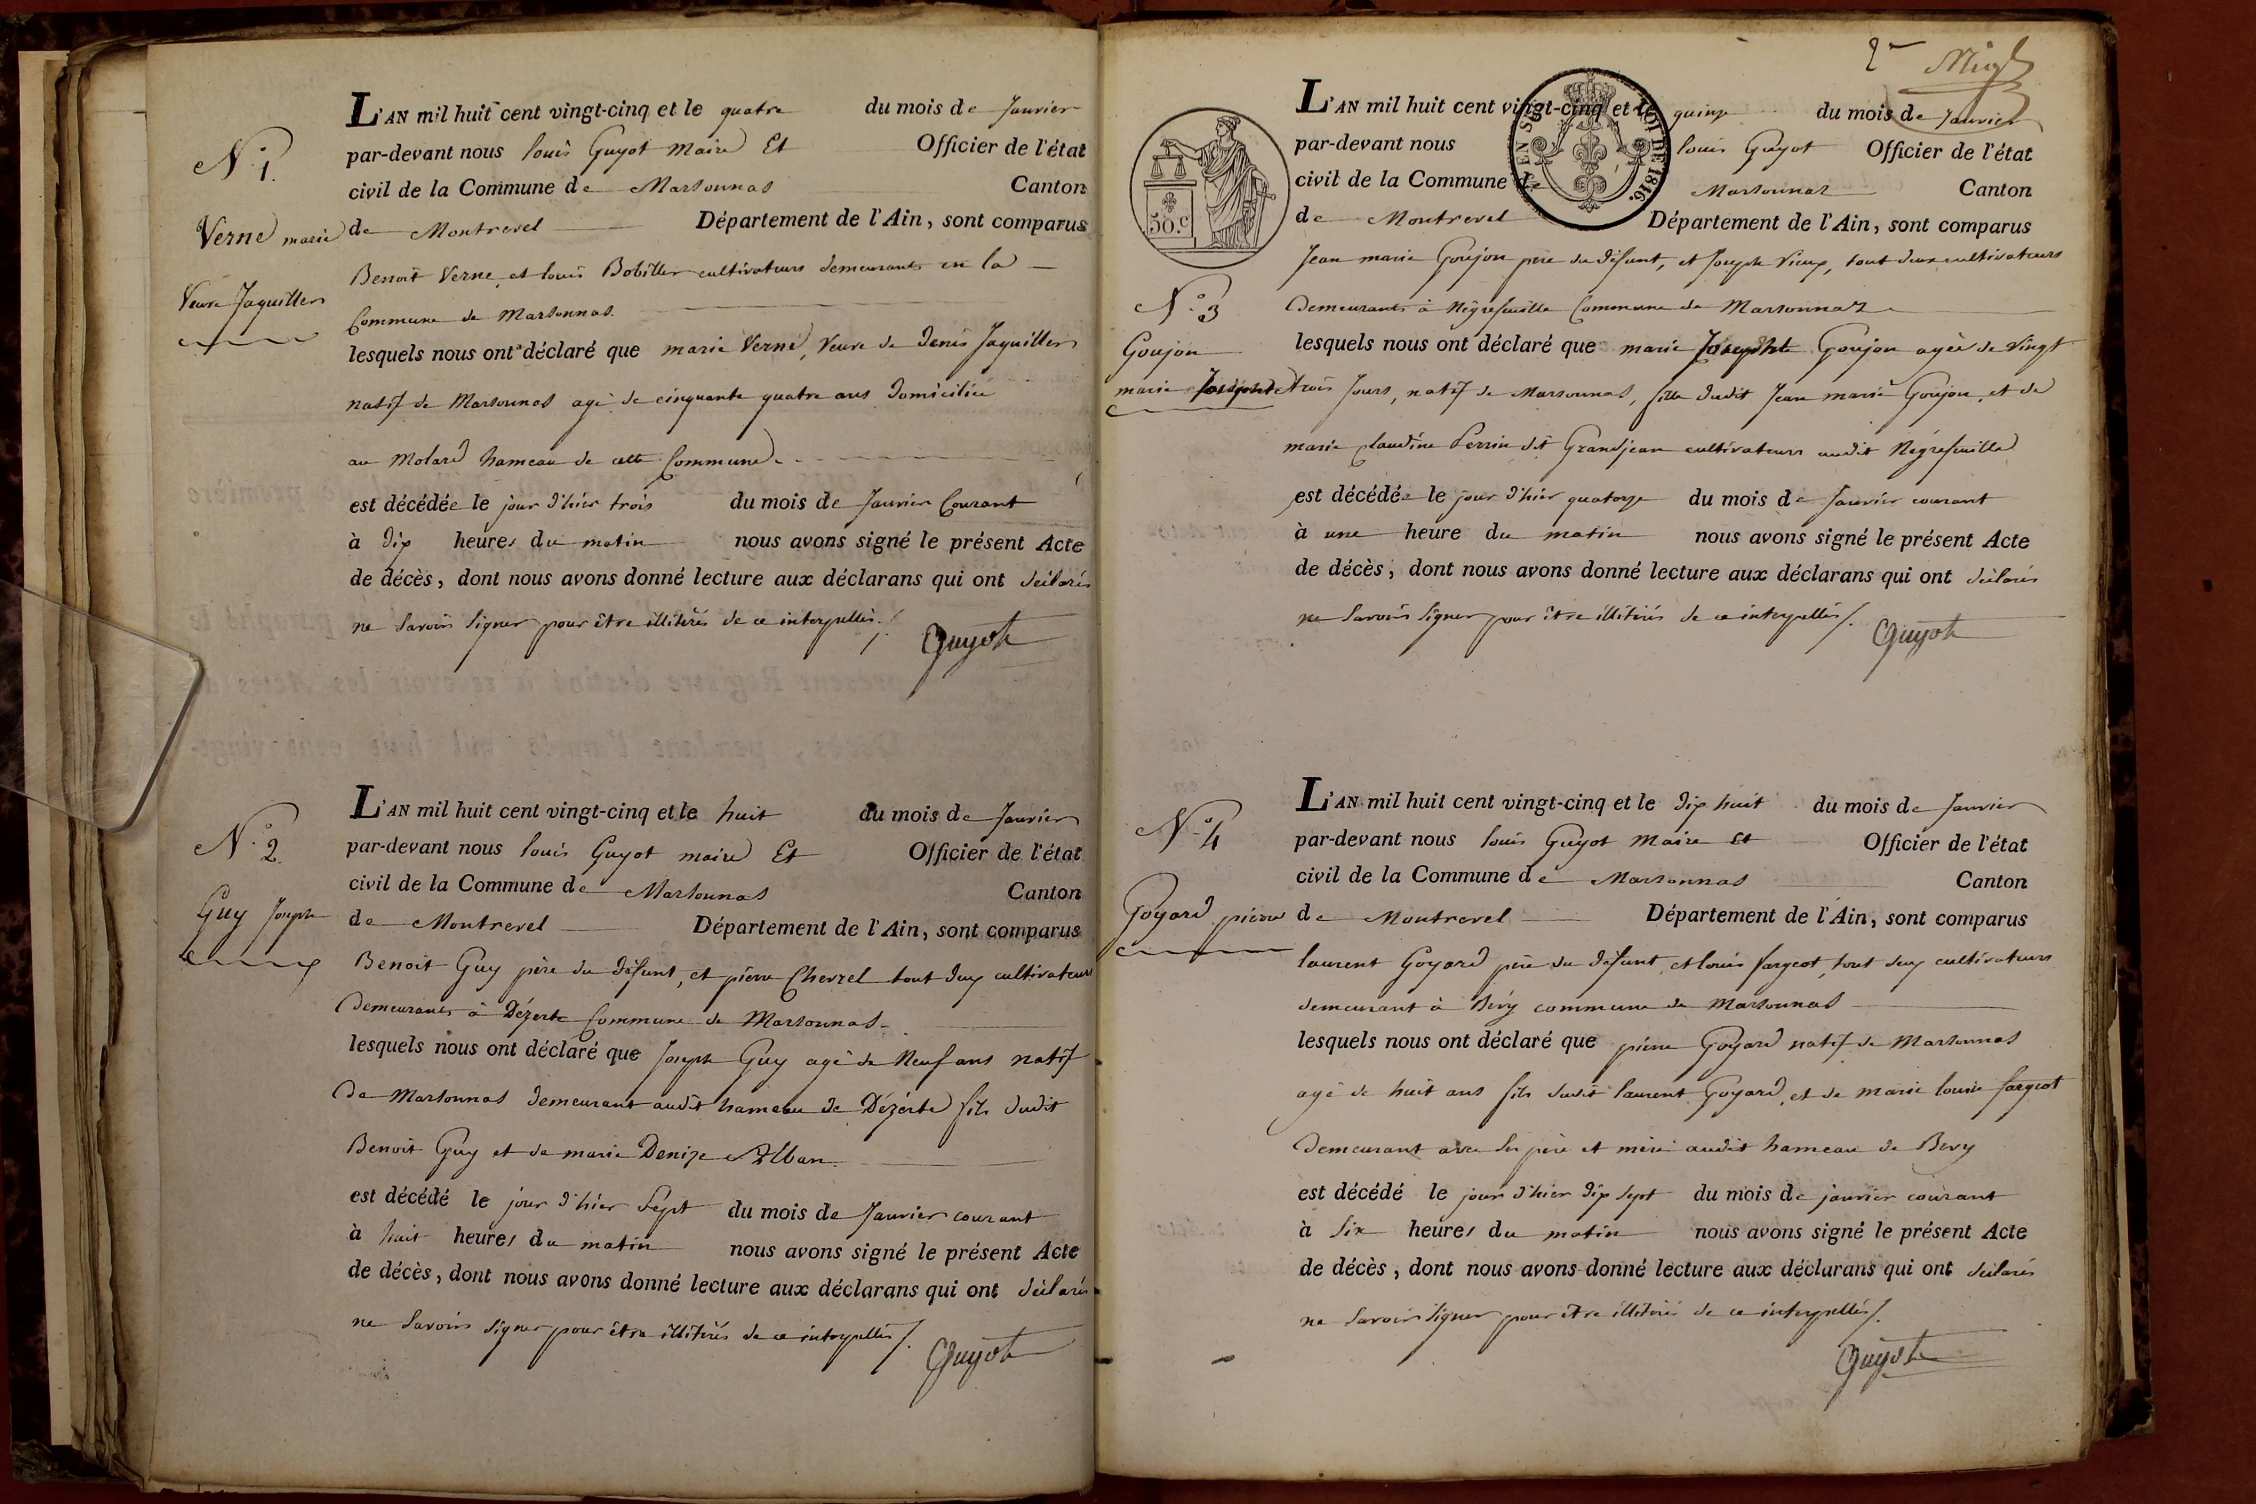 N.º 1.
Verne marie
Veuve Jaquiller
L'AN mil huit cent vingt-cinq et le quatre du mois de Janvier
par-devant nous louis Guyot Maire Et Officier de l'état
civil de la Commune de Marsonnas Canton
de Montrevel Département de l'Ain, sont comparus
Benoit Verne, et louis Bobiller cultivateurs demeurants en la
Commune de Marsonnas.
lesquels nous ont déclaré que marie Verne, Veuve de Denis Jaquiller
natif de Marsonnas agé de cinquante quatre ans Domiciliée
au Molard hameau de cette Commune.
est décédée le jour d'hier trois du mois de Janvier Courant
à dix heures du matin nous avons signé le présent Acte
de décès, dont nous avons donné lecture aux déclarans qui ont déclarés
ne Savoirs signer pour être illitérés de ce interpellés./.
Guyot
N.º 2.
Guy Joseph
L'AN mil huit cent vingt-cinq et le huit du mois de Janvier
par-devant nous louis Guyot maire Et Officier de l'état
civil de la Commune de Marsonnas Canton
de Montrevel Département de l'Ain, sont comparus
Benoit Guy père du défunt, et pierre Chevrel tout deux cultivateurs
Demeurants à Dézerte Commune de Marsonnas.
lesquels nous ont déclaré que Joseph Guy agé de Neuf ans natif
De Marsonnas demeurant audit hameau de Dézérte fils dudit
Benoit Guy et de marie Denize Alban.
est décédé le jour d'hier Sept du mois de Janvier courant
à huit heures du matin nous avons signé le présent Acte
de décès, dont nous avons donné lecture aux déclarans qui ont déclarés
ne Savoirs signer pour être illitérés de ce interpellés/.
Guyot
2me
50.c
LOI DE 1816.
N.º 3
Goujon
marie Josephte
L'AN mil huit cent vingt-cinq et le quinze du mois de Janvier
par-devant nous louis Guyot Officier de l'état
civil de la Commune de Marsonnaz Canton
de Montrevel Département de l'Ain, sont comparus
Jean marie Goujon père du défunt, et Joseph Vieux, tout deux cultivateurs
Demeurants à Négrefeuille Commune de Marsonnaz
lesquels nous ont déclaré que marie Josephte Goujon agée de Vingt
trois Jours, natif de Marsonnas, fille dudit Jean marie Goujon, et de
marie Claudine Perrin dit Grandjean cultivateurs audit Négrefeuille
est décédée le jour d'hier quatorze du mois de Janvier courant
à une heure du matin nous avons signé le présent Acte
de décès, dont nous avons donné lecture aux déclarans qui ont déclarés
ne Savoirs Signer pour être illitérés de ce interpellés/.
Guyot
N.º 4
Goyard pierre
L'AN mil huit cent vingt-cinq et le dix huit du mois de Janvier
par-devant nous louis Guyot Maire Et Officier de l'état
civil de la Commune de Marsonnas Canton
de Montrevel Département de l'Ain, sont comparus
laurent Goyard père du défunt, et louis fargeot, tout deux cultivateurs
demeurant à Bévy commune de Marsonnas
lesquels nous ont déclaré que pierre Goyard natif de Marsonnas
agé de huit ans fils dudit laurent Goyard, et de Marie louise fargeot
Demeurant avec ses père et mère audit hameau de Bevy
est décédé le jour d'hier dix sept du mois de janvier courant
à Six heures du matin nous avons signé le présent Acte
de décès, dont nous avons donné lecture aux déclarans qui ont déclarés
ne Savoirs signer pour être illitérés de ce interpellés/.
Guyot